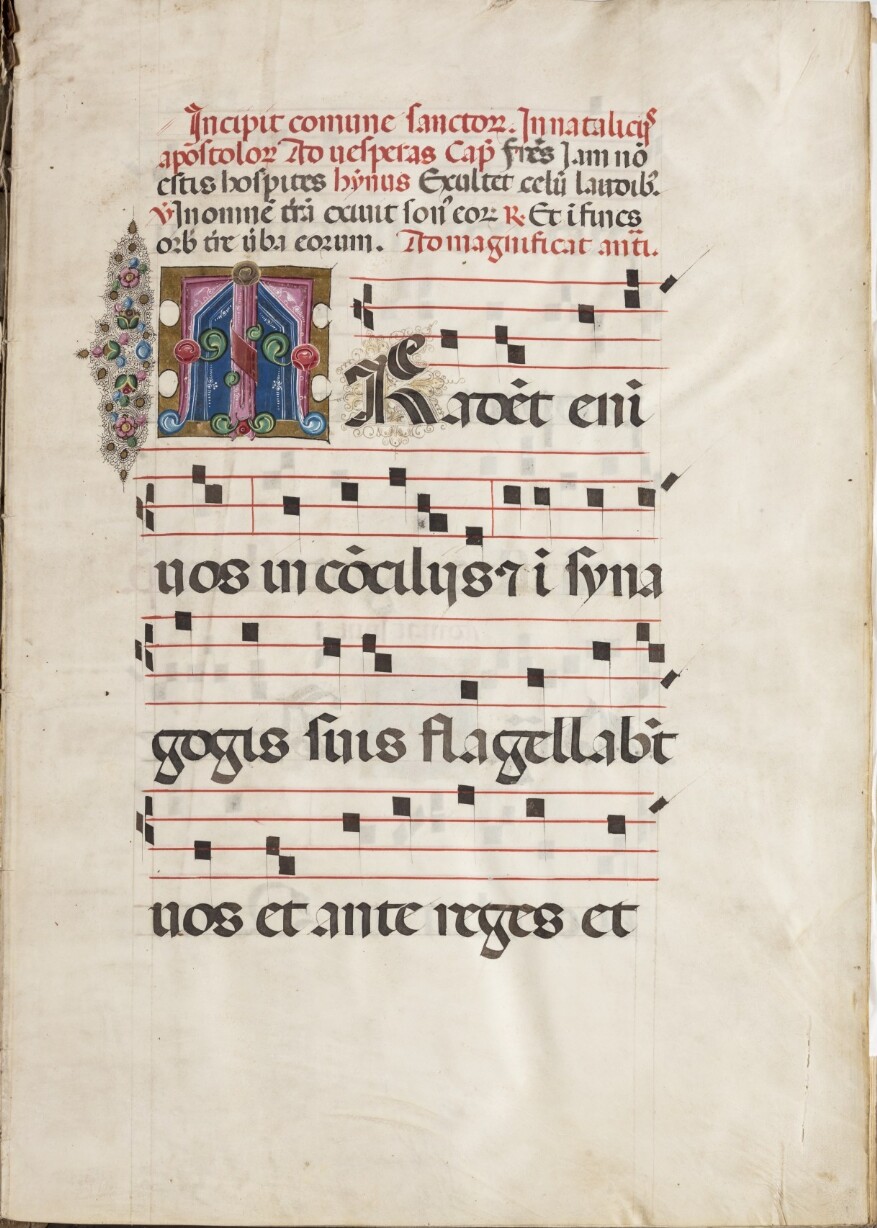 Incipit comune sanctoꝝ. In nataliciis
apostoloꝝ Ad uesperas Cap̄ fr̄es Iam nō
estis hospites hȳnus Exultet celū laudib᷒.
℣ In omnē t̄rā exiuit son᷒ eoꝝ ℟. Et ī fines
orb̄ t̄re ūba eorum. Ad magnificat an̄a.
TRadēt enī
uos in cōcilijs ⁊ ī syna
gogis suis flagellab̄t
uos et ante reges et